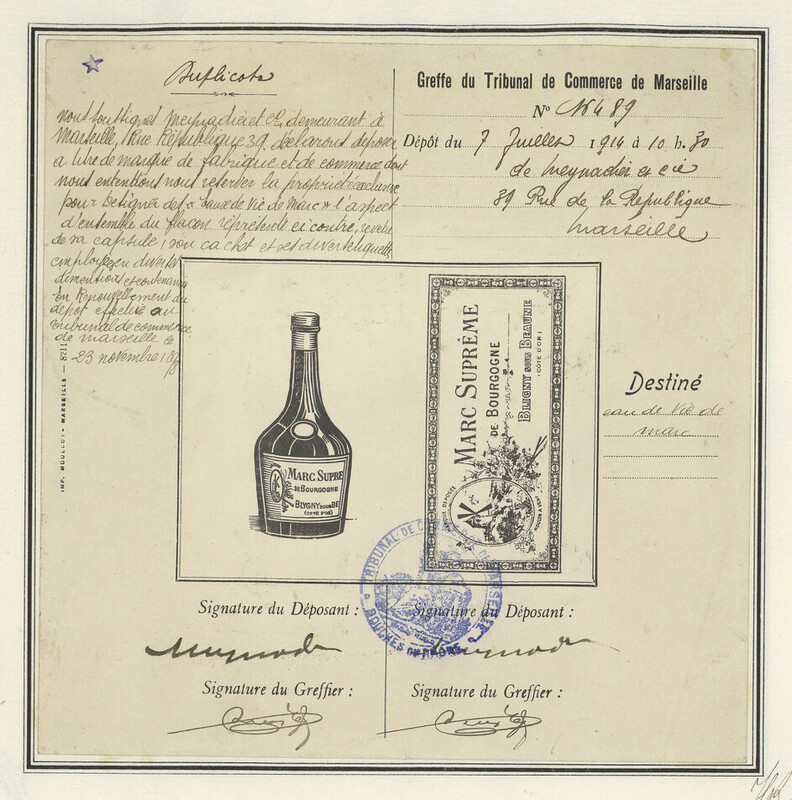 Duplicata
nous soussignés Meynadier et Cie, demeurant à
Marseille, Rue République 39, déclarons déposer
à titre de marque de fabrique et de commerce dont
nous entendons nous réserver la propriété exclusive
pour désigner des "Eaux de Vie de Marc" l'aspect
d'ensemble du flacon représenté ci contre, revêtu
de sa capsule, son cachet et ses divers etiquettes
employées en diverses
dimensions et contenances
En Renouvellement du
dépôt effectué au
Tribunal de commerce
de marseille le
23 novembre
IMP. MOULLOT - MARSEILLE — 8211
Greffe du Tribunal de Commerce de Marseille
No 489
Dépôt du 7 Juillet 1914 à 10 h. 30
de Meynadier et cie
39 Rue de la République
Marseille
MARC SUPRE
DE BOURGOGNE
BLYGNY SOUS BE
(COTE D'OR)
MARC SUPRÊME
DE BOURGOGNE
BLIGNY SOUS BEAUNE
(COTE D'OR)
Destiné
eau de Vie de
marc
TRIBUNAL DE COMMERCE DE MARSEILLE
BOUCHES DU RHÔNE
Signature du Déposant :
Signature du Déposant :
Signature du Greffier :
Signature du Greffier :